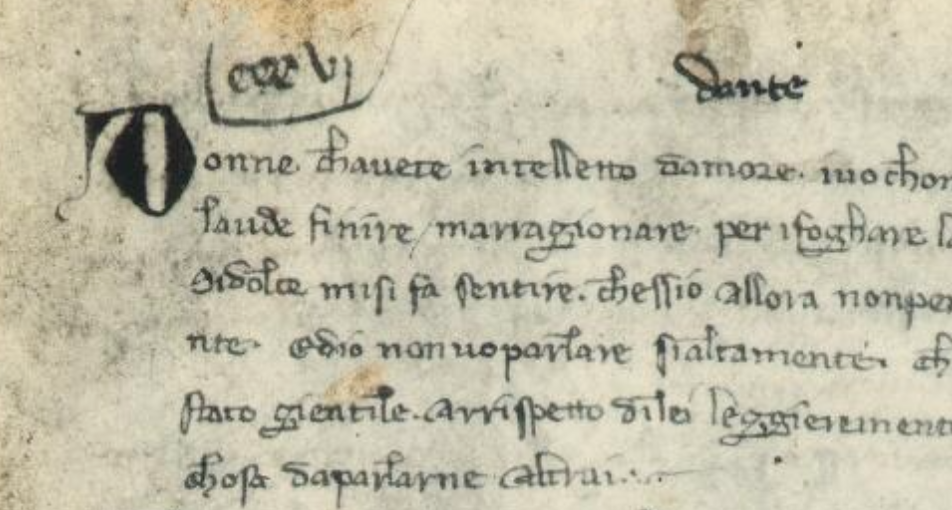 cccv
dante
Donne chavete intelletto damore. iuochon
laude finire / marragionare per isfoghare la
sidolce misi fa sentire. chessio allora nonper
nte. edio nonuoparlare sialtamente. ch
stato gientile. Arrispetto dilei leggierement
chosa daparlarne altrui.